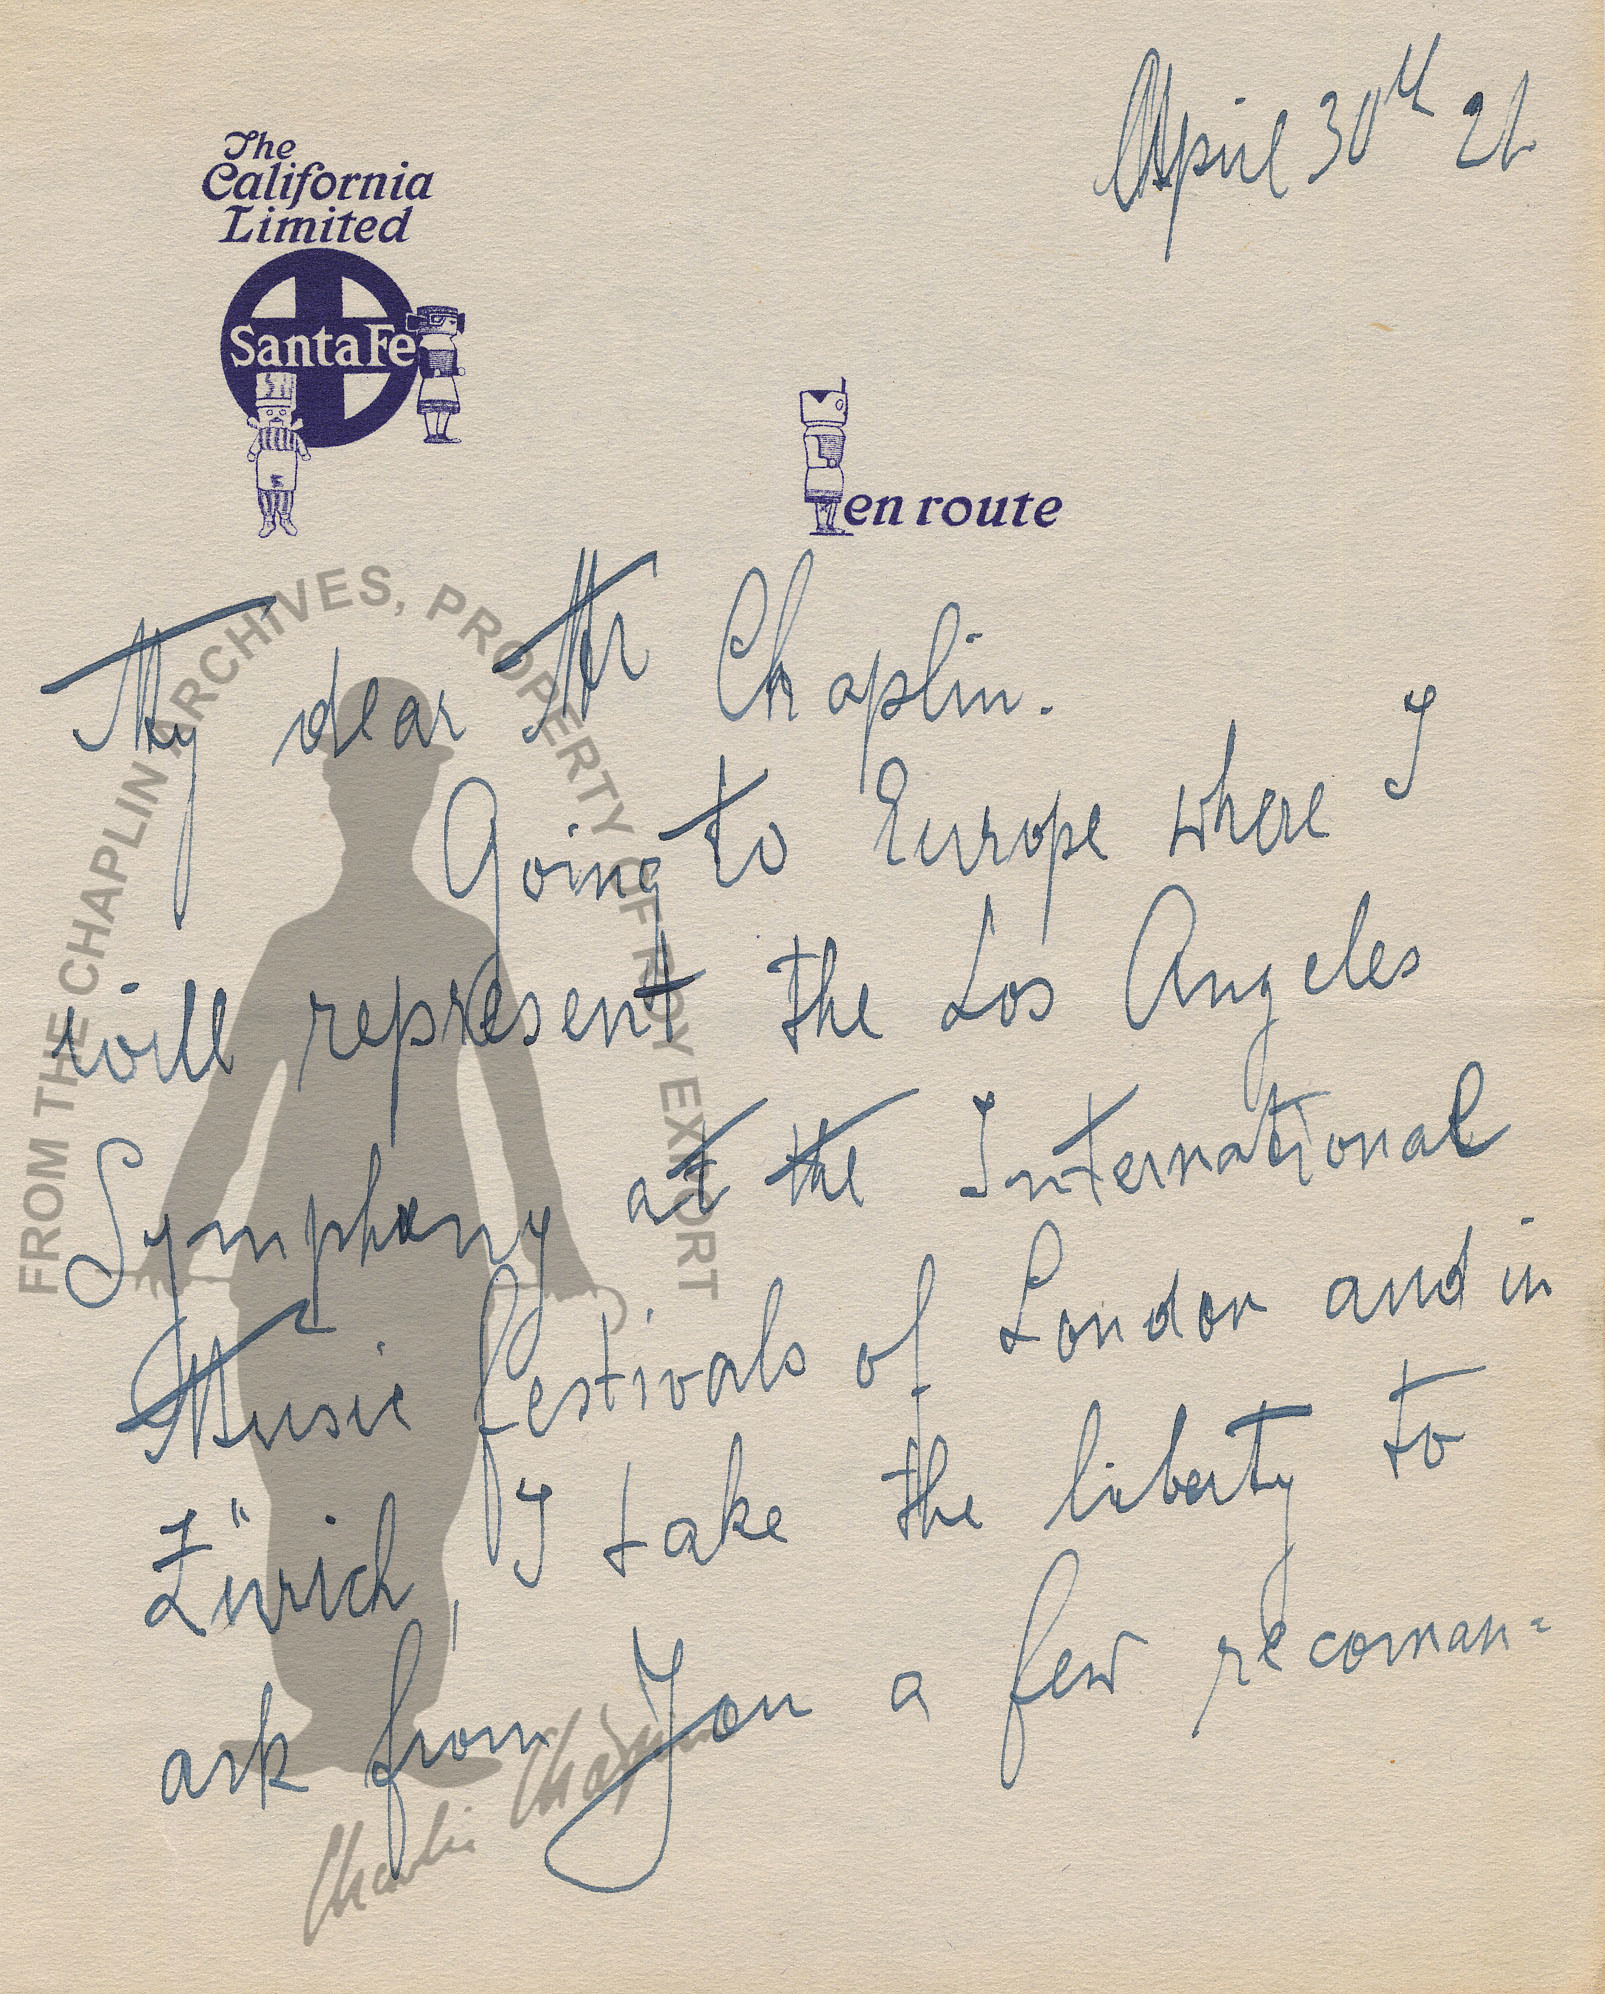 April 30th 26
The
California
Limited
Santa Fe
en route
My dear Mr Chaplin.
Going to Europe where I
will represent the Los Angeles
Symphony at the International
Music festivals of London and in
Zürich, I take the liberty to
ask from You a few recoman=
FROM THE CHAPLIN ARCHIVES, PROPERTY OF ROY EXPORT
Charlie Chaplin